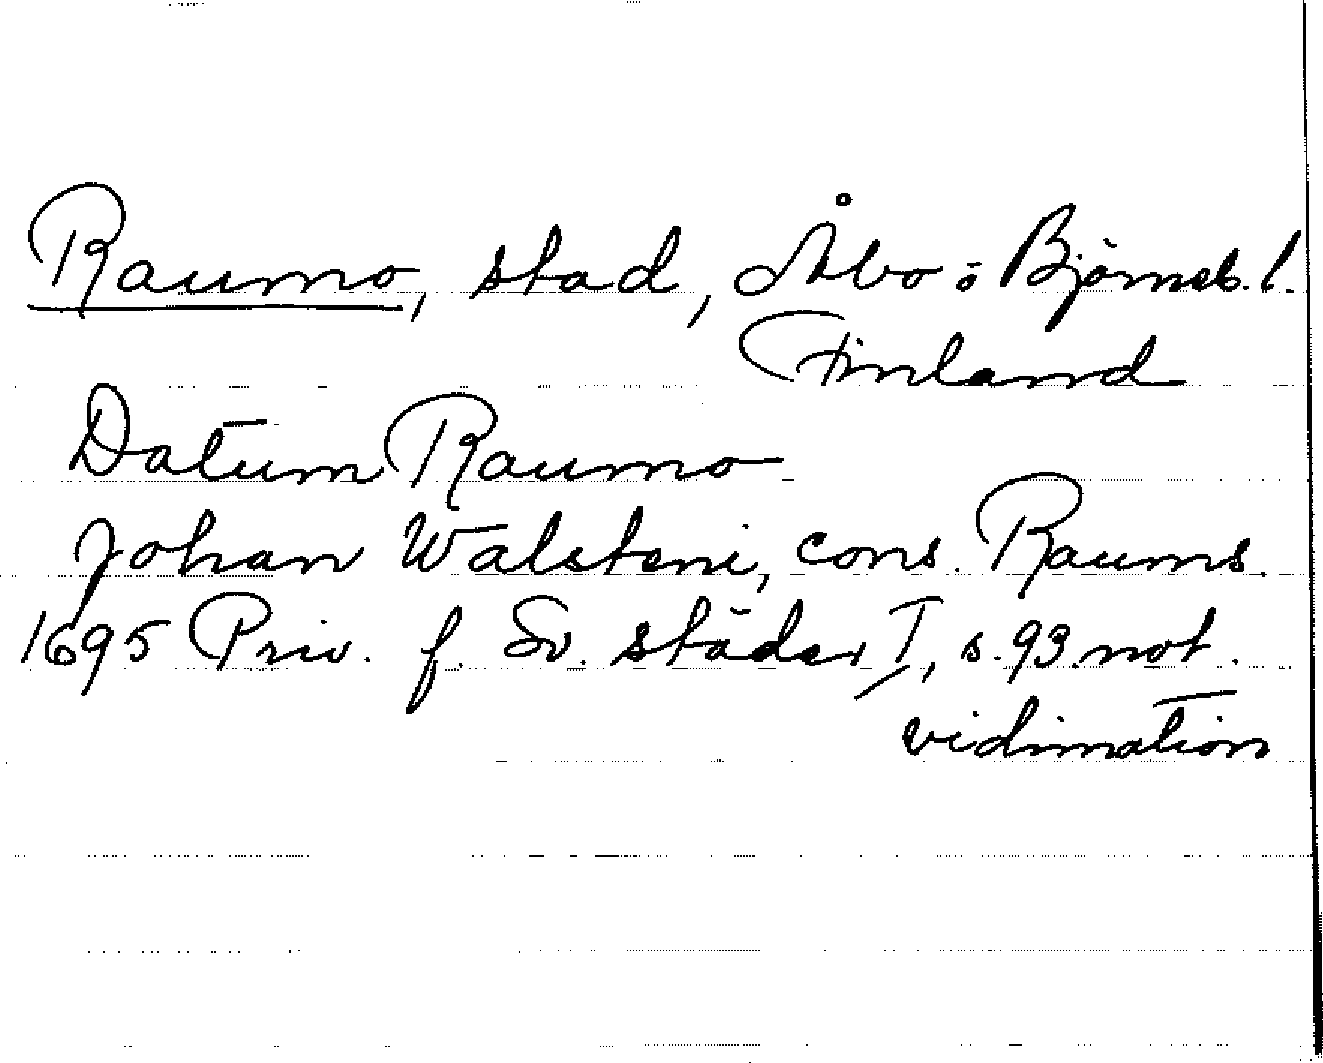 Raumo, stad, Åbo o Björneb. l.
Finland
Datum Raumo
Johan Walsteni, cons. Raums.
1695 Priv. f. Sv. städer I, s. 93 not.
vidimation